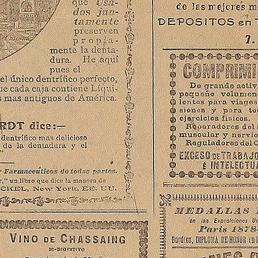 que Usa-
dos jun-
tamente
preserven
propia-
mente la denta-
dura. He aquí
pues el
el único dentífrico perfecto,
que cada caja contiene Líqui-
mas antiguos de América.
RDT dice:—
dentífrico mas delicioso
de la dentadura y el
Farmacéuticos de todas partes.
un libro que dice la manera de
CKEL, New York, EE. UU.
VINO DE CHASSAING
BI-DIGESTIVO
de las mejores m
DEPOSITOS en
7.
COMPRIMI
De grande activ
pequeño volumen
lentes para viages
siones y para todo
ejercicios físicos.
Reparadores del
muscular y nervio
Reguladores del C
EXCESO DE TRABAJO
E INTELECTUA
MEDALLAS
en las Exposiciones
Paris 1878-
Burdeos, DIPLOMA DE HONOR